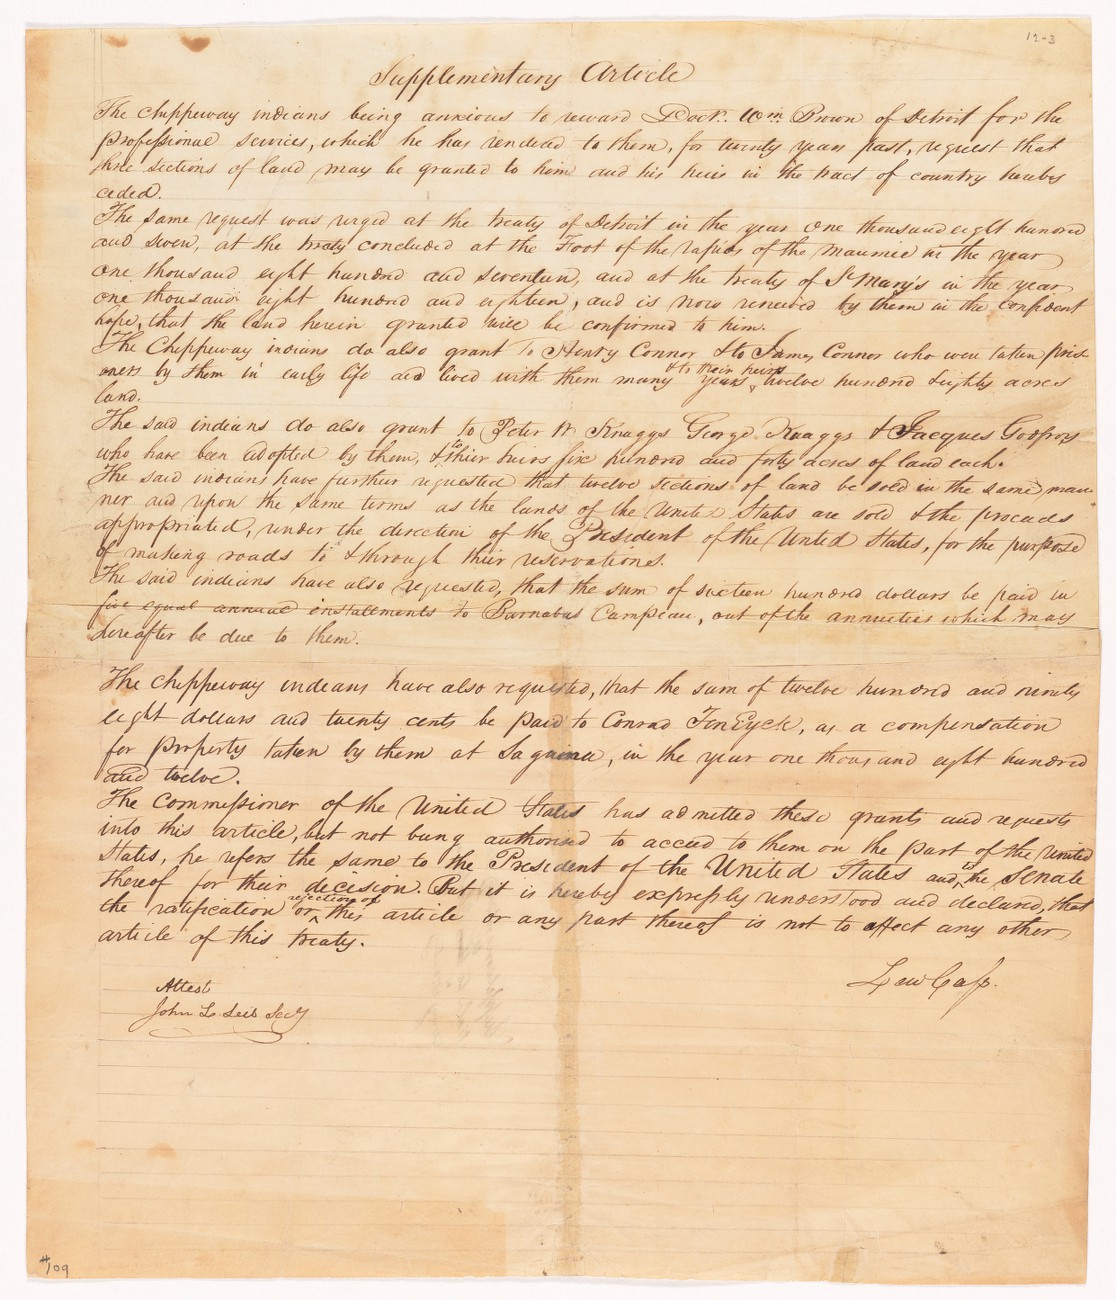 12-3
Supplementary Article
The Chippeway indians being anxious to reward Doctr. Wm. Brown of Detroit for the
professional services, which he has rendered to them, for twenty years past, request that
three sections of land may be granted to him and his heirs in the tract of country hereby
ceded.
The same request was urged at the treaty of Detroit in the year one thousand eight hundred
and seven, at the treaty concluded at the Foot of the rapids of the Maumie in the year
one thousand eight hundred and seventeen, and at the treaty of St Mary's in the year
one thousand eight hundred and eighteen, and is now renewed by them in the confident
hope, that the land herein granted will be confirmed to him.
The Chippeway indians do also grant to Henry Connor & to James Connor who were taken pris-
oners by them in early life and lived with them many years & to their heirs twelve hundred & eighty acres
land.
The said indians do also grant to Peter W Knaggs George Knaggs & Jacques Godfroy
who have been adopted by them, & to thier heirs six hundred and forty acres of land each.
The said indians have further requested that twelve sections of land be sold in the same man-
ner and upon the same terms as the lands of the United States are sold & the proceeds
appropriated, under the direction of the President of the United States, for the purpose
of making roads to & through thier reservations.
The said indians have also requested, that the sum of sixteen hundred dollars be paid in
five equal annual installments to Barnabas Campeau, out of the annuities which may
hereafter be due to them.
The Chippeway indians have also requested, that the sum of twelve hundred and ninety
eight dollars and twenty cents be paid to Conrad TenEyck, as a compensation
for property taken by them at Saguina, in the year one thousand eight hundred
and twelve.
The Commissioner of the United States has admitted these grants and requests
into this article, but not being authorised to acceed to them on the part of the United
States, he refers the same to the President of the United States and to the Senate
thereof for their decision. But it is hereby expressly understood and declared, that
the ratification or rejection of this article or any part thereof is not to affect any other
article of this treaty.
Lew Cass.
Attest
John L Leib Secy
#109